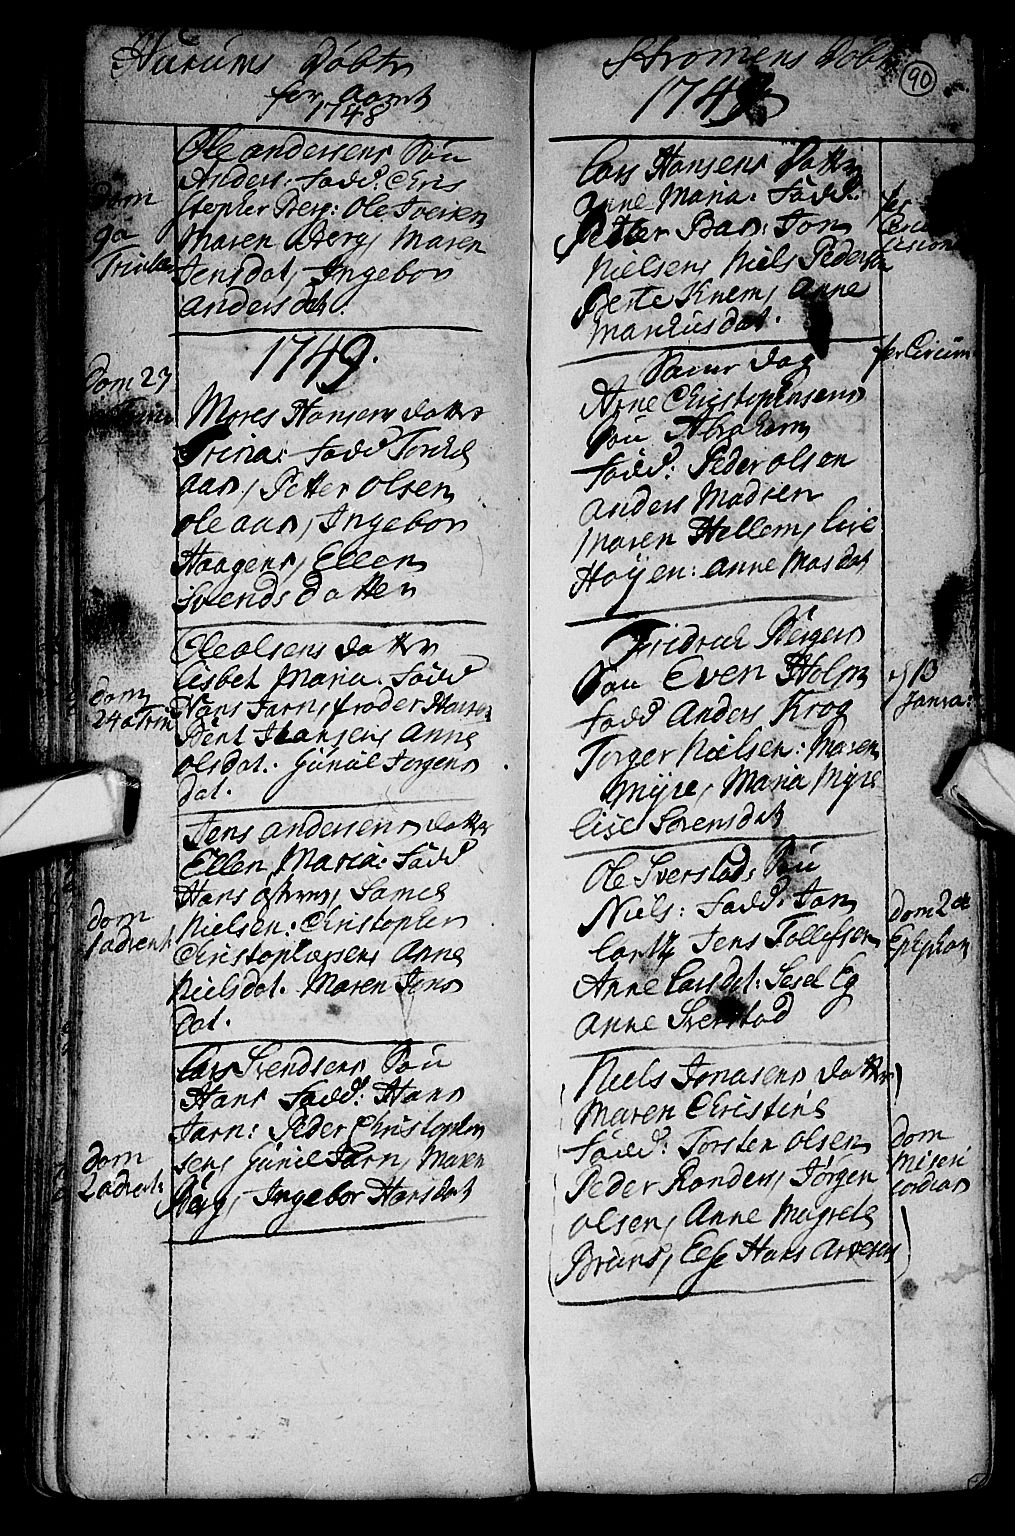 Hurums Döbte
for aaret
1748
dom
9 a
Trinita
Ole andersens Sön
Anders: Fadd: Chris
stopher Berg: Ole Tveiten
Maren Berg, Maren
Jensdat, Ingebor
andersdat.
1749.
dom 23
a Trin
Mores Hansens datter
Trina: Fadd Torkel
aas, Petter olsen,
ole aas, Ingebor
Haagens, Ellen
Svends datter
dom
24 a Trin
Ole olsens datter
lisbet Maria. Fadd
Hans Jarn, froder Hansen
Bent Hansens Anne
olsdat. Gunil Jorgens
dat.
dom
1 advent
Jens andersens datter
Ellen Maria: Fadd
Hans
Nielsen: Christopher
Christophersens Anne
Nielsdat. Maren Jons
dat.
dom
2 advent:
Lars Svendsens Sön
Hans Fadd: Hans
Jarn: Peder Christopher
sens Gunil Jarn, Maren
Berg, Ingebor Hansdat
Stromens Döbte
90
1749
fer
Circum
cisionis
Lars Hansens Datter
Anne Maria: Fadd:
Petter Bas: Jon
Nielsen, Niels Pedersen
Berte Knem, Anne
Markusdat.
fer Circum
Samme dag
Arne Christophersens
Sön Abraham
Fadd: Peder olsen
anders Madsen
Maren Hellem, lise
Høyen: anne Masdat
13
Janua:
Fridrich Bergers
Sön Even Holm
Fadd Anders Krog
Torger Nielsen: Maren
Myre, Maria Myre
lise Sorensdat
dom 2 a
Epiphan
Ole Sverstad: Sön
Niels: Fadd: Jon
Jens Tollefsen
Anne Larsdat: Sesel Eg
Anne Sverstad
dom
Miseri
cordias
Niels Jonasens datter
Maren Christine
Fadd: Torsten olsen
Peder Randers, Jörgen
olsen, Anne Magrete
Bruns, Else Hans arvesen